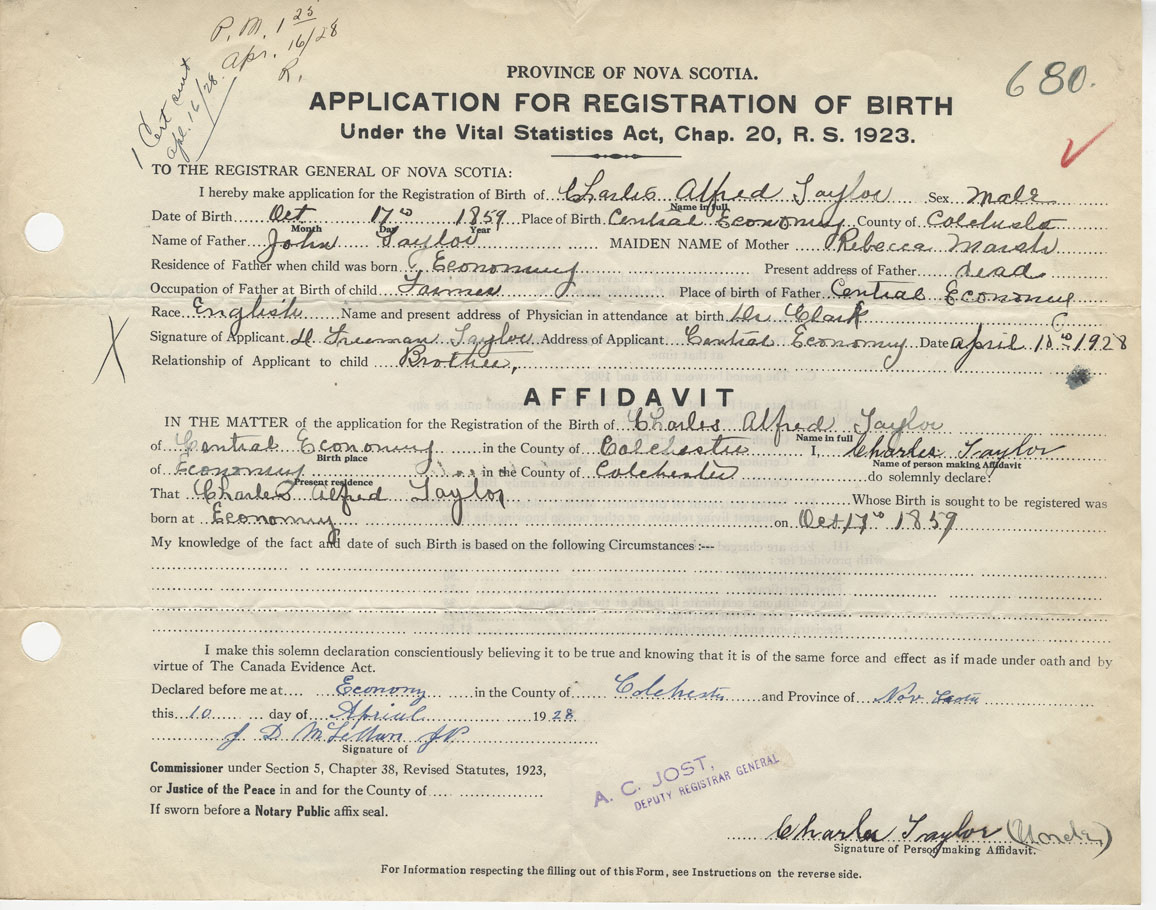 P. M. 1 25
Apr. 16/28
R.
1 Cert sent
Apl. 16/28
680.
PROVINCE OF NOVA SCOTIA.
APPLICATION FOR REGISTRATION OF BIRTH
Under the Vital Statistics Act, Chap. 20, R. S. 1923.
TO THE REGISTRAR GENERAL OF NOVA SCOTIA:
I hereby make application for the Registration of Birth of Charles Alfred Taylor Sex Male
Name in full
Date of Birth Oct 17th 1859 Place of Birth Central Economy County of Colchester
Month Day Year
Name of Father John Taylor MAIDEN NAME of Mother Rebecca Marsh
Residence of Father when child was born Economy Present address of Father dead
Occupation of Father at Birth of child Farmer Place of birth of Father Central Economy
Race English Name and present address of Physician in attendance at birth Dr Clark
X Signature of Applicant Freeman Taylor Address of Applicant Central Economy Date April 10th 1928
Relationship of Applicant to child Brother,
AFFIDAVIT
IN THE MATTER of the application for the Registration of the Birth of Charles Alfred Taylor
Name in full
of Central Economy in the County of Colchester I, Charles Taylor
Birth place Name of person making Affidavit
of Economy in the County of Colchester do solemnly declare?
Present residence
That Charles Alfred Taylor Whose Birth is sought to be registered was
born at Economy on Oct 17th 1859
My knowledge of the fact and date of such Birth is based on the following Circumstances :---
I make this solemn declaration conscientiously believing it to be true and knowing that it is of the same force and effect as if made under oath and by
virtue of The Canada Evidence Act.
Declared before me at Economy in the County of Colchester and Province of Nov Scotia
this 10 day of Apriul 1928
J D McLellan JP
Signature of
Commissioner under Section 5, Chapter 38, Revised Statutes, 1923,
or Justice of the Peace in and for the County of
If sworn before a Notary Public affix seal.
A. C. JOST,
DEPUTY REGISTRAR GENERAL
Charles Taylor (Uncle)
Signature of Person making Affidavit.
For Information respecting the filling out of this Form, see Instructions on the reverse side.